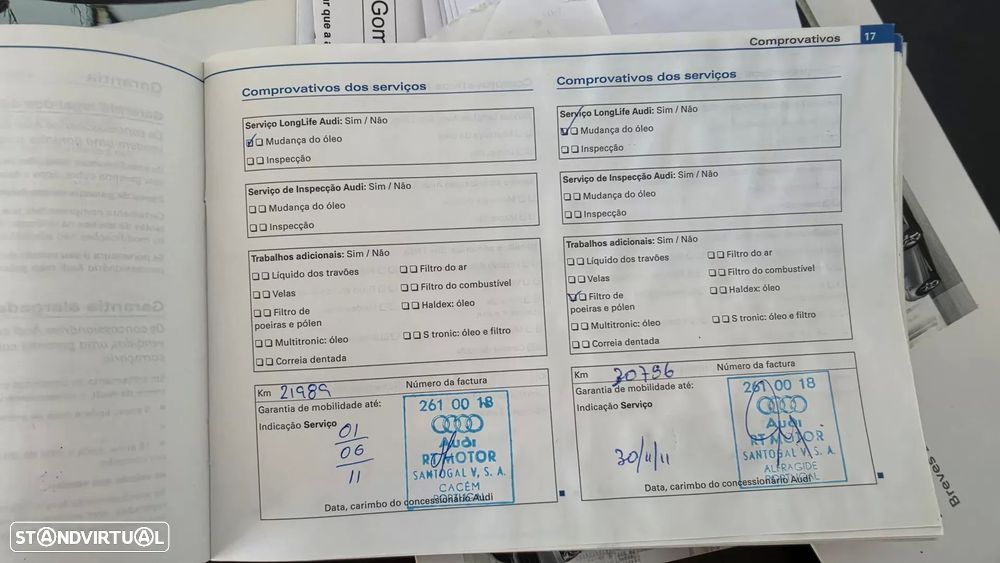 Gom
r que a a
Comprovativos 17
Comprovativos dos serviços
Serviço LongLife Audi: Sim / Não
Mudança do óleo
Inspecção
Serviço de Inspecção Audi: Sim / Não
Mudança do óleo
Inspecção
Trabalhos adicionais: Sim / Não
Líquido dos travões
Filtro do ar
Velas
Filtro do combustível
Filtro de
poeiras e pólen
Haldex: óleo
Multitronic: óleo
S tronic: óleo e filtro
Correia dentada
Km 21989
Número da factura
Garantia de mobilidade até:
Indicação Serviço
01
06
11
261 00 18
Audi
RT MOTOR
SANTOGAL V, S. A.
CACÉM
PORTUGAL
Data, carimbo do concessionário Audi
Comprovativos dos serviços
Serviço LongLife Audi: Sim / Não
Mudança do óleo
Inspecção
Serviço de Inspecção Audi: Sim / Não
Mudança do óleo
Inspecção
Trabalhos adicionais: Sim / Não
Líquido dos travões
Filtro do ar
Velas
Filtro do combustível
Filtro de
poeiras e pólen
Haldex: óleo
Multitronic: óleo
S tronic: óleo e filtro
Correia dentada
Km 30796
Número da factura
Garantia de mobilidade até:
Indicação Serviço
30/11/11
261 00 18
Audi
RT MOTOR
SANTOGAL V, S. A.
ALFRAGIDE
PORTUGAL
Data, carimbo do concessionário Audi
Breves
STANDVIRTUAL